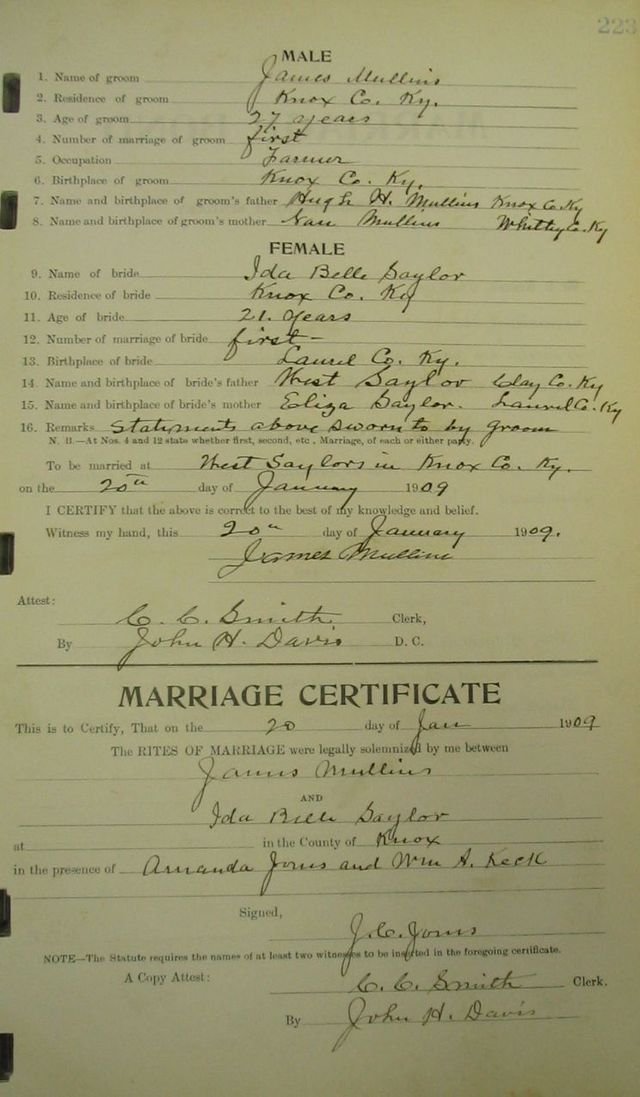 223
MALE
1. Name of groom James Mullins
2. Residence of groom Knox Co. Ky.
3. Age of groom 27 years
4. Number of marriage of groom first
5. Occupation Farmer
6. Birthplace of groom Knox Co. Ky.
7. Name and birthplace of groom's father Hugh H. Mullins Knox Co. Ky
8. Name and birthplace of groom's mother Nan Mullins Whitley Co. Ky
FEMALE
9. Name of bride Ida Belle Saylor
10. Residence of bride Knox Co. Ky
11. Age of bride 21. Years
12. Number of marriage of bride first-
13. Birthplace of bride Laurel Co. Ky.
14. Name and birthplace of bride's father West Saylor Clay Co. Ky
15. Name and birthplace of bride's mother Eliza Saylor. Laurel Co. Ky
16. Remarks Statements above sworn to by groom
N. B.—At Nos. 4 and 12 state whether first, second, etc., Marriage, of each or either party.
To be married at West Saylors in Knox Co. Ky.
on the 20th day of January 1909
I CERTIFY that the above is correct to the best of my knowledge and belief.
Witness my hand, this 20th day of January 1909.
James Mullins
Attest:
C. C. Smith Clerk,
By John H. Davis D. C.
MARRIAGE CERTIFICATE
This is to Certify, That on the 20 day of Jan 1909
The RITES OF MARRIAGE were legally solemnized by me between
James Mullins
AND
Ida Belle Saylor
at in the County of Knox
in the presence of Amanda Jones and Wm A. Keck
Signed,
J. C. Jones
NOTE—The Statute requires the names of at least two witnesses to be inserted in the foregoing certificate.
A Copy Attest: C. C. Smith Clerk.
By John H. Davis